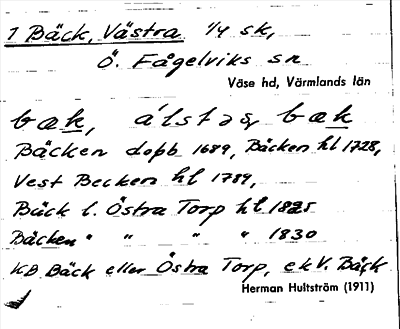 1 Bäck, Västra 1/4 sk,
Ö. Fågelviks sn
Väse hd, Värmlands län
bæk, álstəg bæk
Bäcken dopb 1689, Bäcken hl 1728,
Vest Becken hl 1789,
Bäck l. Östra Torp hl 1825
Bäcken " " " " 1830
KB Bäck eller Östra Torp, ek V. Bäck
Herman Hultström (1911)